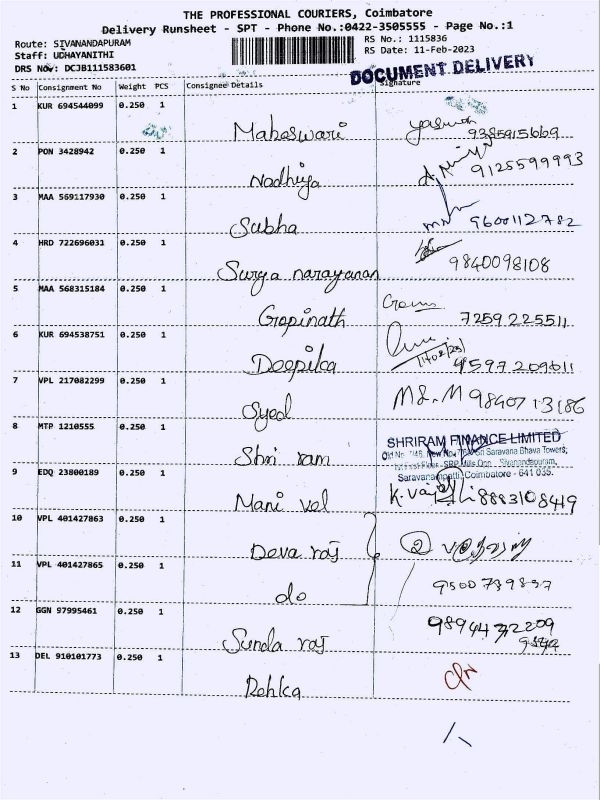 THE PROFESSIONAL COURIERS, Coimbatore
Delivery Runsheet - SPT - Phone No.:0422-3505555 - Page No.:1
Route: SIVANANDAPURAM
RS No.: 1115836
Staff: UDHAYANITHI
RS Date: 11-Feb-2023
DRS No.: DCJB111583601
DOCUMENT DELIVERY
S No Consignment No Weight PCS Consignee Details Signature
1 KUR 694544099 0.250 1 Maheswari 9385915669
2 PON 3428942 0.250 1 Nadhiya 9125599993
3 MAA 569117930 0.250 1 Subha 9600112782
4 HRD 722696031 0.250 1 Surya narayanan 9840098108
5 MAA 568315184 0.250 1 Gopinath 7259225511
6 KUR 694538751 0.250 1 Deepika 9597209611
7 VPL 217082299 0.250 1 Syed 9840713186
8 MTP 1210555 0.250 1 Shri ram
SHRIRAM FINANCE LIMITED
Saravana Bhava Towers,
SRP Mills Opp, Sivanandapuram,
Saravanampatti, Coimbatore - 641 035.
9 EDQ 23800189 0.250 1 Mani vel 8883108419
10 VPL 401427863 0.250 1 Deva raj 2
11 VPL 401427865 0.250 1 do
12 GGN 97995461 0.250 1 Sunda raj
13 DEL 910101773 0.250 1